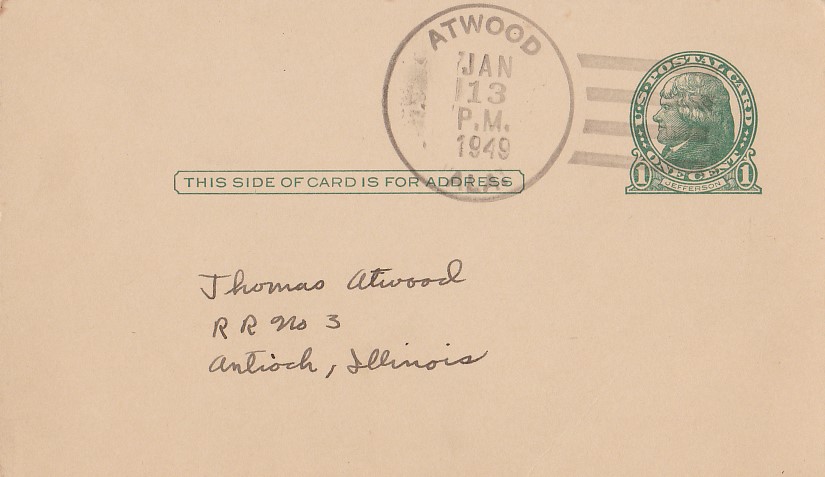 ATWOOD
JAN
13
P.M.
1949
ALA
U.S. POSTAL CARD
ONE CENT
1 JEFFERSON 1
THIS SIDE OF CARD IS FOR ADDRESS
Thomas Atwood
R R No 3
Antioch, Illinois